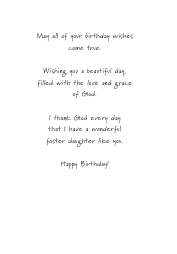 May all of your birthday wishes
come true.
Wishing you a beautiful day,
filled with the love and grace
of God.
I thank God every day
that I have a wonderful
foster daughter like you.
Happy Birthday!